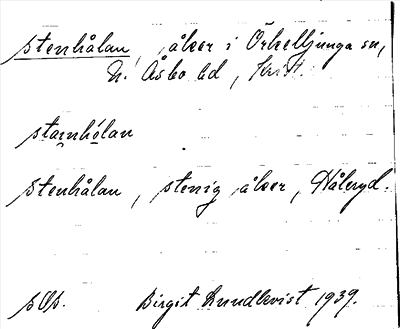 Stenhålan, åker i Örkelljunga sn,
N. Åsbo hd, Krist.
stamhólan
Stenhålan, stenig åker, Håleryd.
sOp. Birgit Lundkvist 1939.